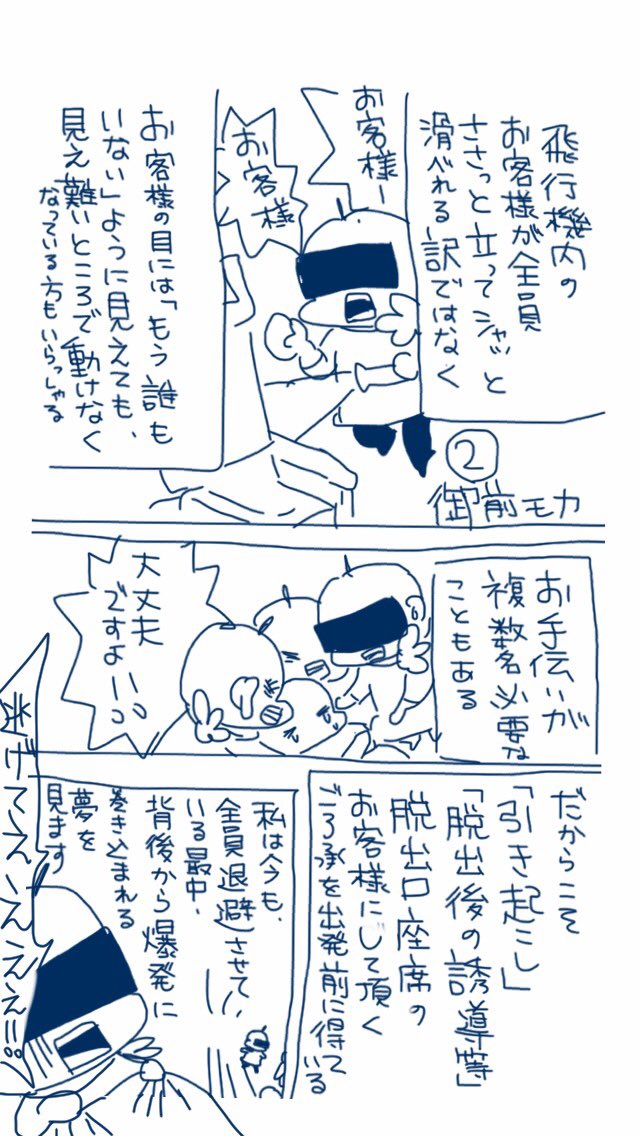 飛行機内の
お客様が全員
ささっと立ってシャッと
滑べれる訳ではなく
お客様ー
お客様
お客様の目には「もう誰も
いない」ように見えても、
見え難いところで動けなく
なっている方もいらっしゃる
②
御前モカ
お手伝いが
複数名必要な
こともある
大丈夫
ですよー!!
だからこそ
「引き起こし」
「脱出後の誘導等」
脱出口座席の
お客様にして頂く
ご了承を出発前に得ている
私は今も、
全員退避させて
いる最中、
背後から爆発に
巻き込まれる
夢を
見ます
逃げてえええええ!!!